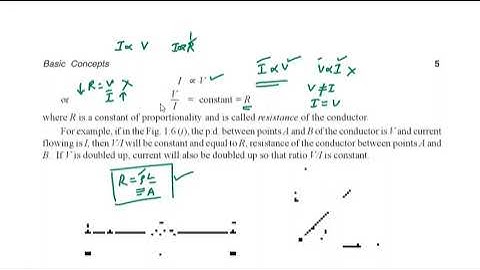 I ∝ V I ∝ 1/R
Basic Concepts 5
I ∝ V ✓ I ∝ V ✓ V ∝ I ×
↓ R = V/I ↑ × V ≠ I
or V/I = constant = R I = V
where R is a constant of proportionality and is called resistance of the conductor.
For example, if in the Fig. 1.6 (i), the p.d. between points A and B of the conductor is V and current
flowing is I, then V/I will be constant and equal to R, resistance of the conductor between points A and
B. If V is doubled up, current will also be doubled up so that ratio V/I is constant.
R = ρL/A ✓